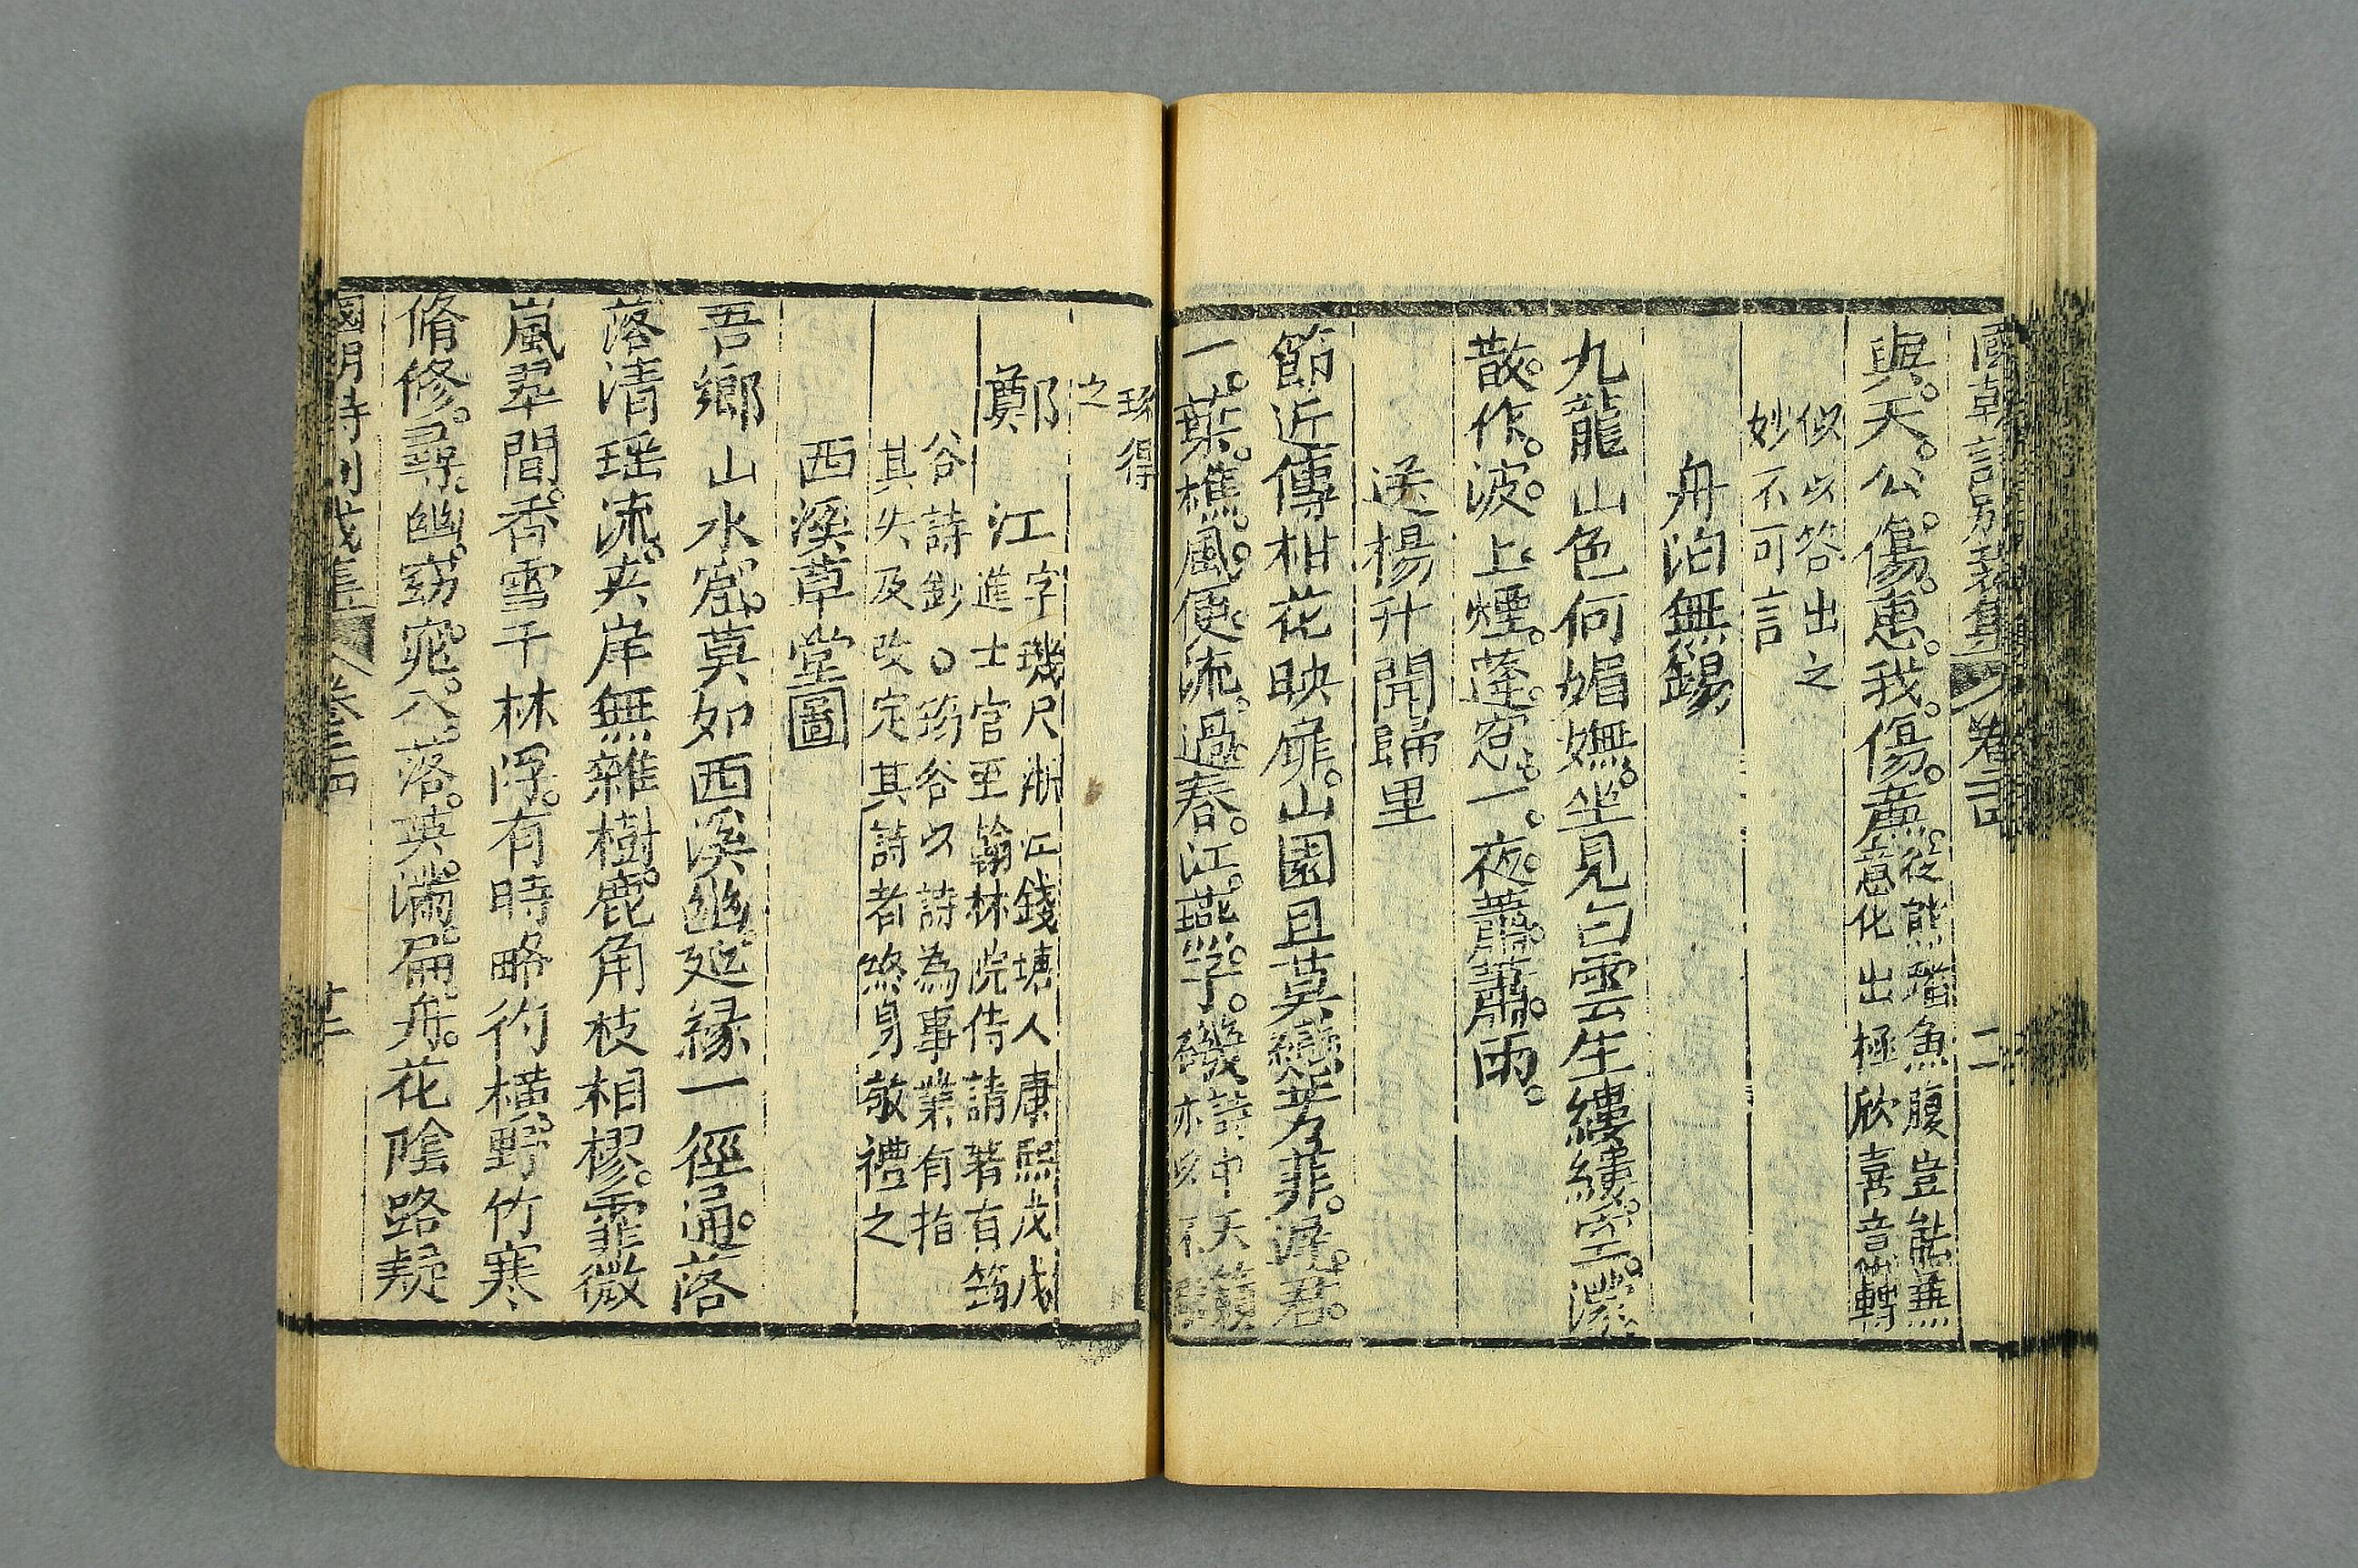 國朝詩別裁集 卷二四 二
與天公傷惠我傷廉從熊蹯魚腹豈能兼
意化出極欣喜音節轉
似以答出之
妙不可言
舟泊無錫
九龍山色何媚嫵坐見白雲生縷縷空濛
散作波上煙蓬窓一夜蕭蕭雨
送楊升聞歸里
節近傳柑花映扉山園且莫戀芳菲源君
一葉樵風便流過春江燕字磯詩中天籟
亦以不
琢得
之
鄭 江字璣尺浙江錢塘人康熙戊戌
進士官至翰林院侍請著有筠
谷詩鈔○筠谷以詩為事業有指
其失及改定其詩者終身敬禮之
西溪草堂圖
吾鄉山水窟莫如西溪幽延緣一徑通落
落清瑶流夾岸無雜樹鹿角枝相樛霏微
嵐翠間香雪千林浮有時略彴橫野竹寒
脩修尋幽窈窕八落英滿扁舟花陰路疑
國朝詩別裁集 卷二四 廿二